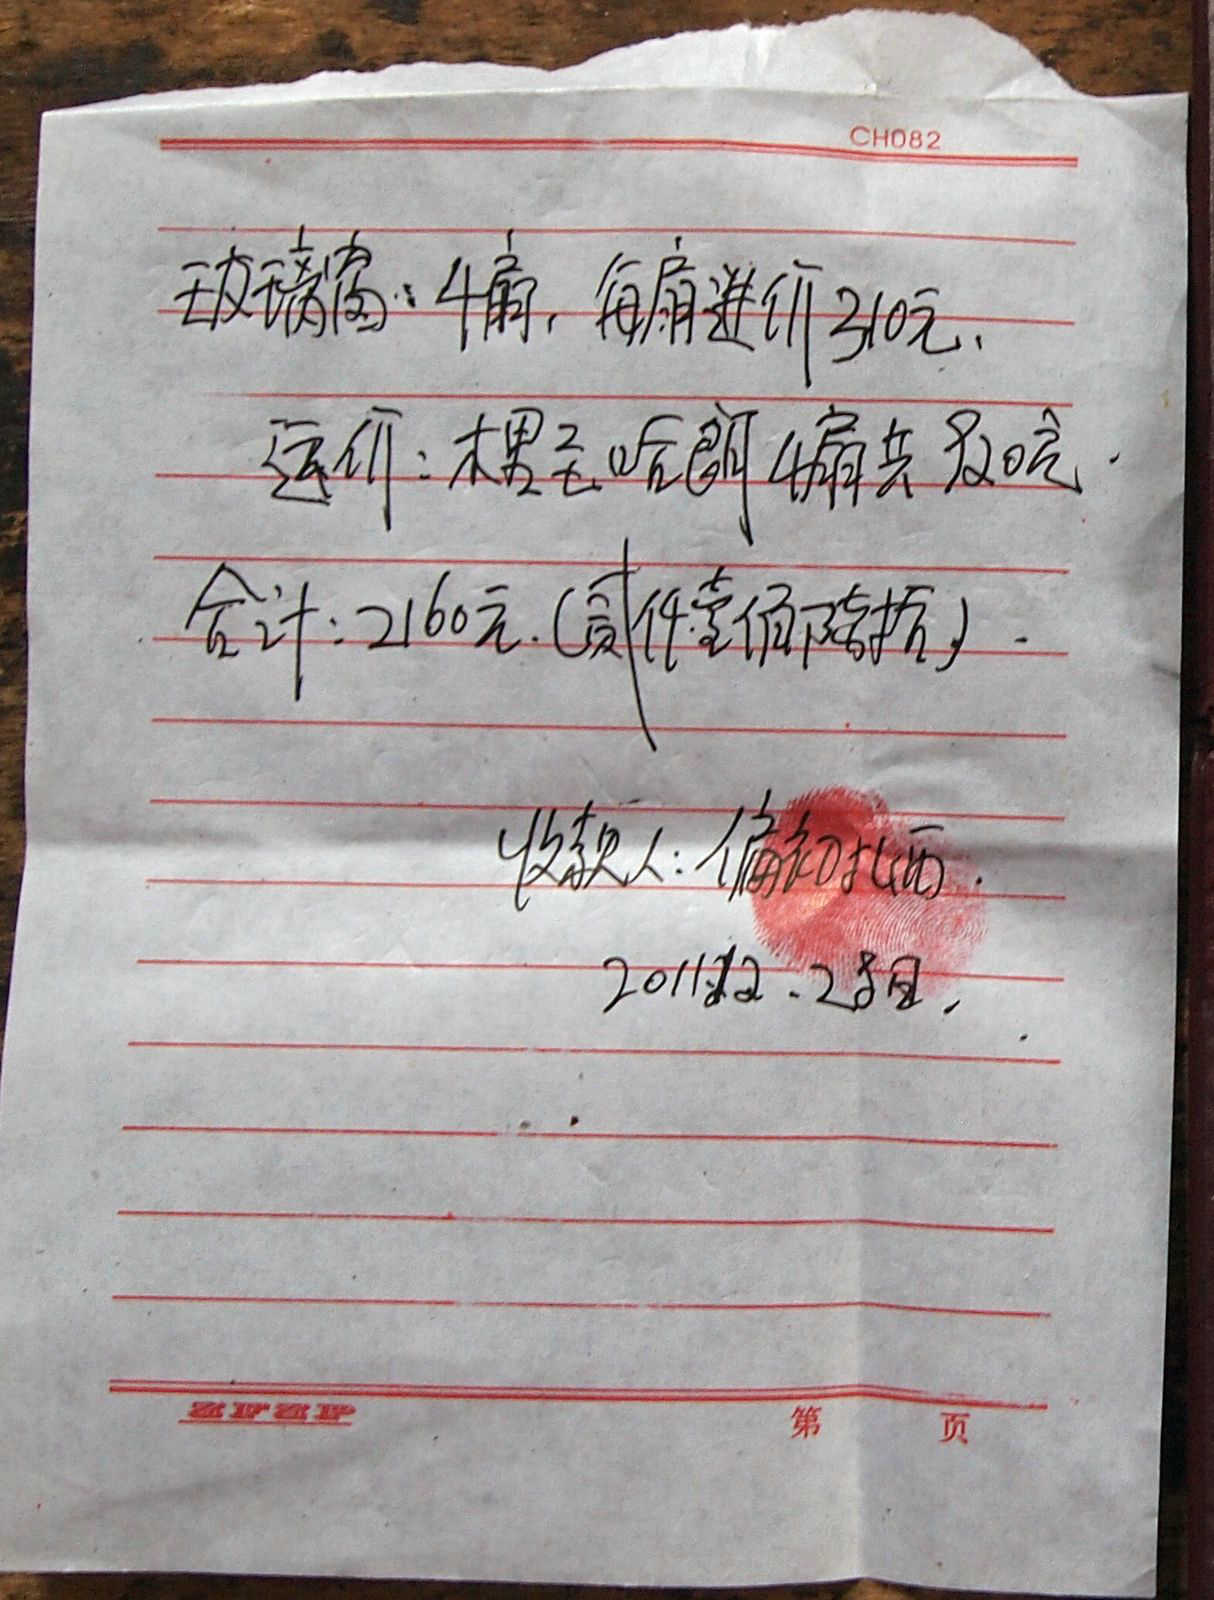 CH082
玻璃窗：4扇，每扇進价310元、
运价：木里至 4扇共920元.
合计：2160元.(贰仟壹佰陆拾).
收款人：偏初扎西.
2011.12.
ZFZP 第 页